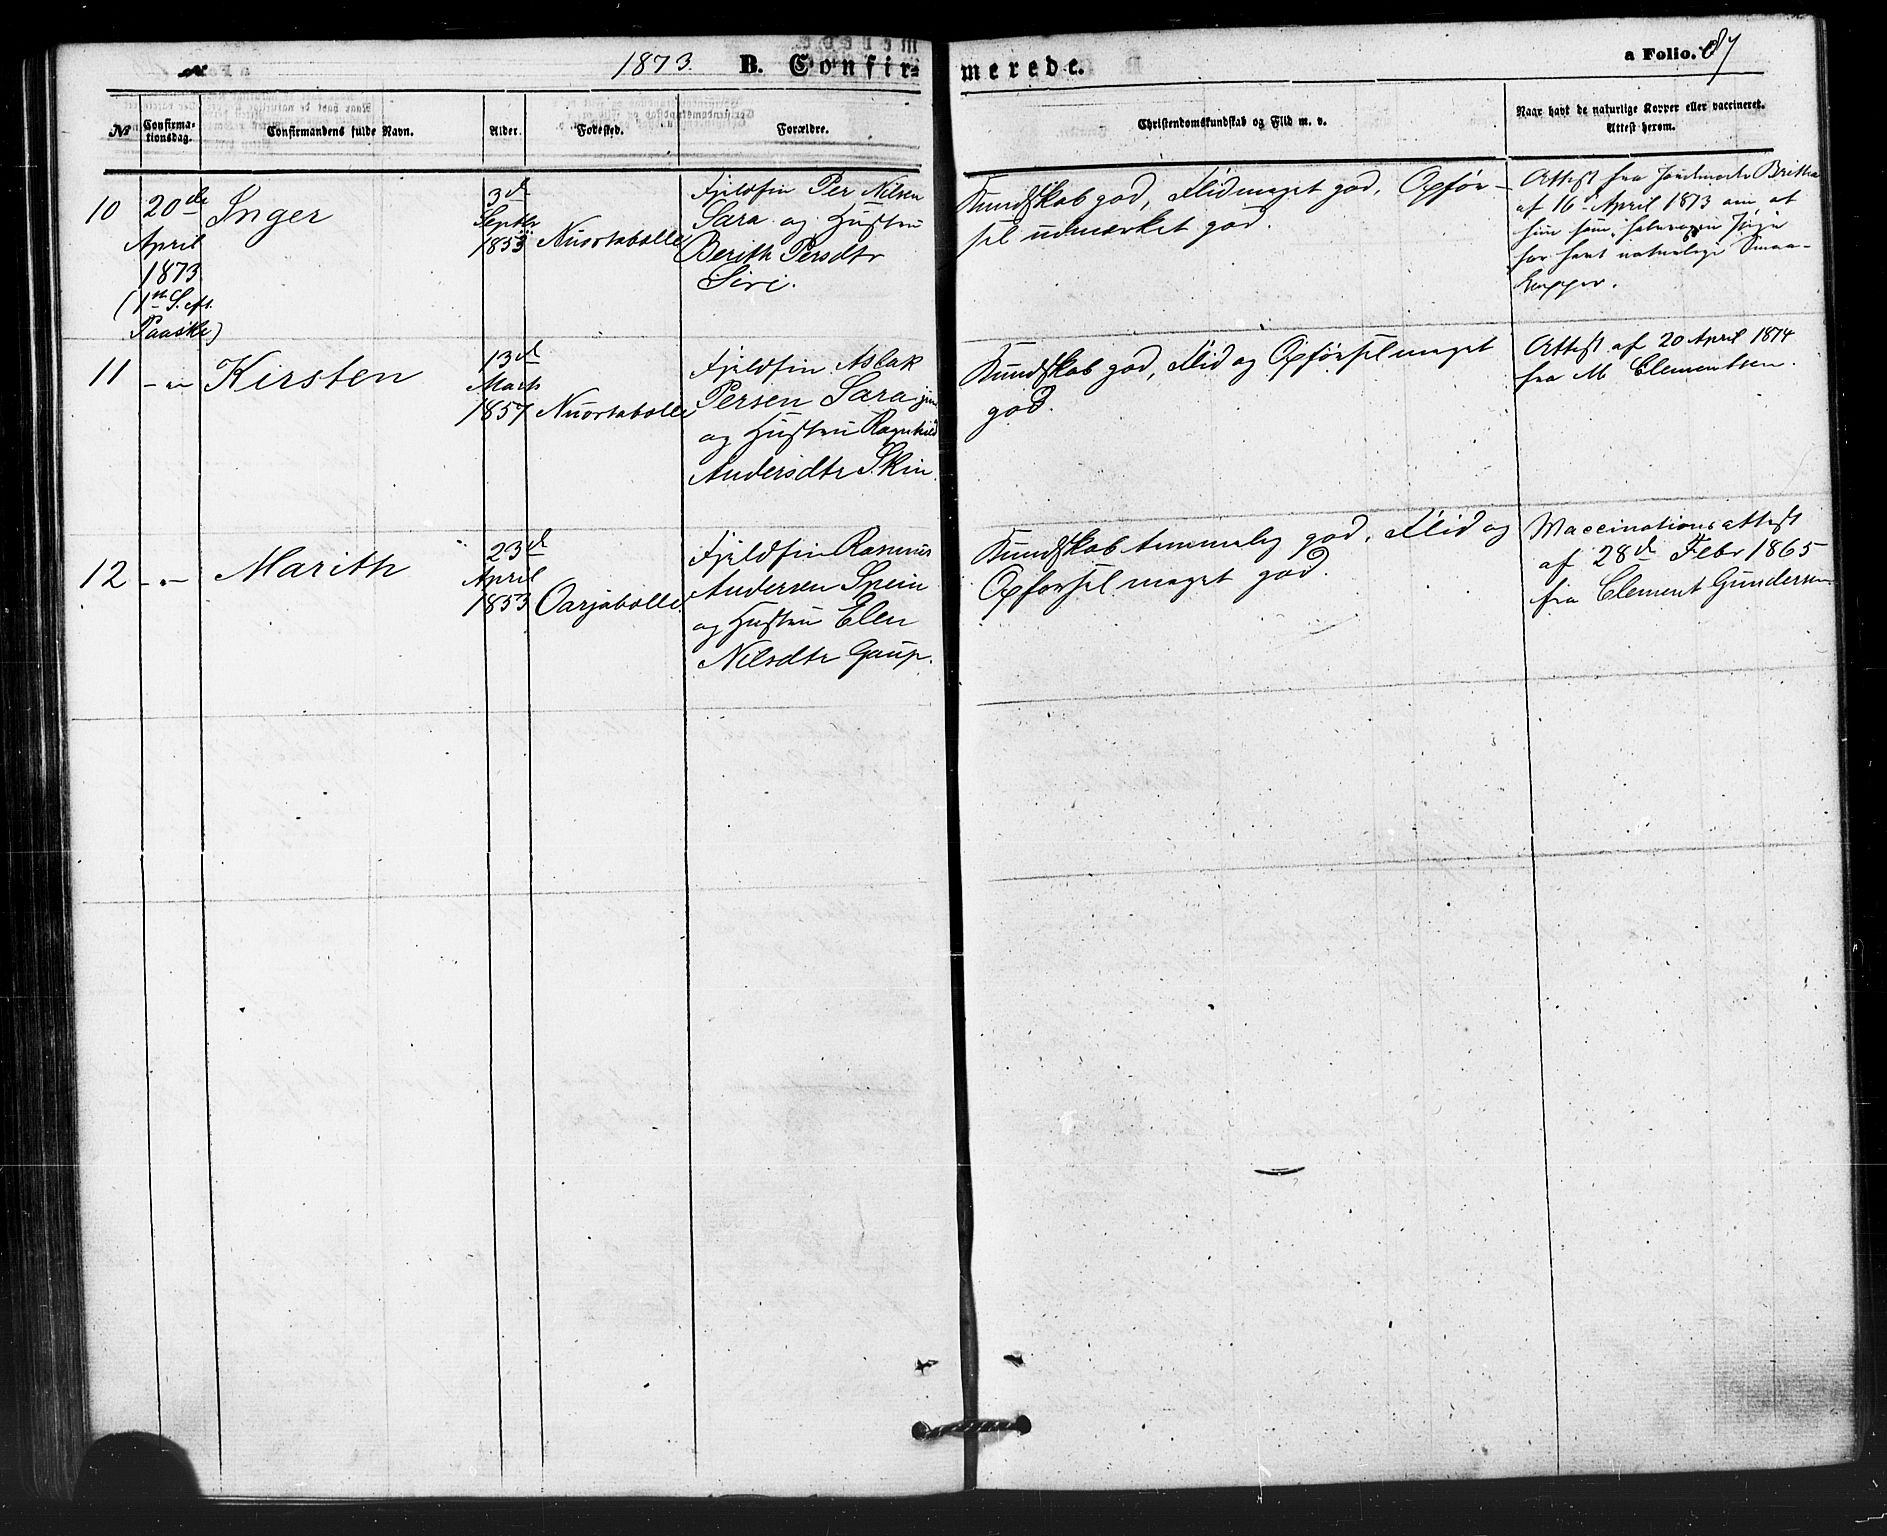 1873. B. Confirmerede. a Folio. 87
No
Confirmationsdag.
Confirmandens fulde Navn.
Alder.
Fødested.
Forældre.
Christendomskundskab og Flid m. v.
Naar havt de naturlige Kopper eller vaccineret.
Attest herom.
10
20de
April
1873
(1ste S. eft.
Paaske)
Inger
3d
Septbr
1853
Nuortabælle
Fjeldfin Per Nilsen
Sara og Hustru
Berith Persdtr
Siri.
Kundskab god, Flid meget god, Opfør-
sel udmærket god.
Attest fra Jordmoder Britha
af 16 April 1873 om at
hun som halvvoxen Pige
har havt naturlige Smaa-
kopper.
11
-"-
Kirsten
13d
Marts
1857
Nuortabælle
Fjeldfin Aslak
Persen Sara jun
og Hustru Ragnhild
Andersdtr Skin
Kundskab god, Flid og Opførsel meget
god.
Attest af 20 April 1874
fra M Clementsen.
12
-"-
Marith
23d
April
1853
Oarjabælle
Fjeldfin Rasmus
Andersen Spein
og Hustru Elen
Nilsdtr Gaup.
Kundskab temmelig god, Flid og
Opførsel meget god.
Vaccinationsattest
af 28d Febr 1865
fra Clement Gundersen